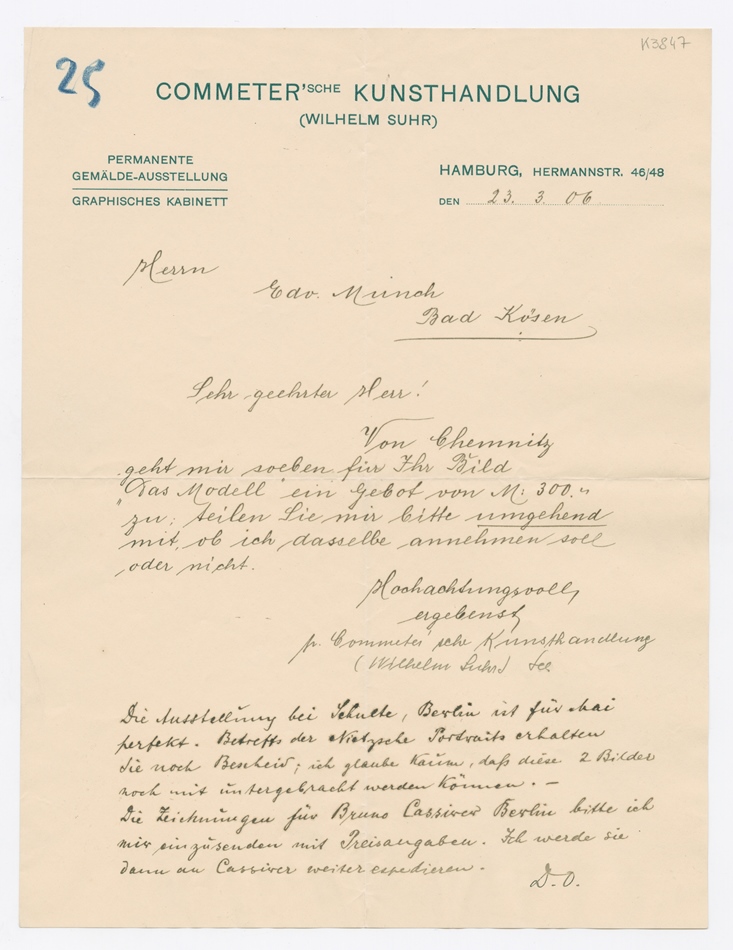 K3847
25
COMMETER'SCHE KUNSTHANDLUNG
(WILHELM SUHR)
PERMANENTE
GEMÄLDE-AUSSTELLUNG
GRAPHISCHES KABINETT
HAMBURG, HERMANNSTR. 46/48
DEN 23. 3. 06
Herrn
Edv. Münch
Bad Kösen
Sehr geehrter Herr!
Von Chemnitz
geht mir soeben für Ihr Bild
"Das Modell" ein Gebot von M: 300.-
zu; teilen Sie mir bitte umgehend
mit, ob ich dasselbe annehmen soll
oder nicht.
Hochachtungsvoll,
ergebenst,
p. Commeter'sche Kunsthandlung
(Wilhelm Suhr)
Die Ausstellung bei Schulte, Berlin ist für Mai
perfekt. Betreffs der Nietzsche Portraits erhalten
Sie noch Bescheid; ich glaube kaum, daß diese 2 Bilder
noch mit untergebracht werden können. -
Die Zeichnungen für Bruno Cassirer Berlin bitte ich
mir einzusenden mit Preisangaben. Ich werde sie
dann an Cassirer weiter expedieren.
D.O.